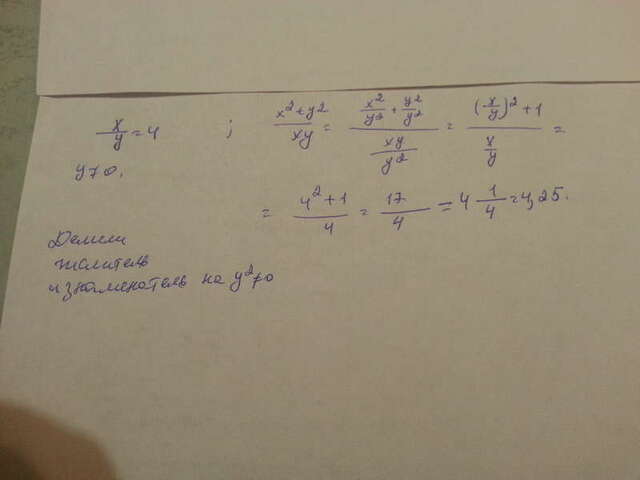 x/y = 4 ; (x² + y²)/(xy) = (x²/y² + y²/y²)/(xy/y²) = ((x/y)² + 1)/(x/y) =
y ≠ 0.
= (4² + 1)/4 = 17/4 = 4 1/4 = 4,25.
Делим
числитель
и знаменатель на y² ≠ 0